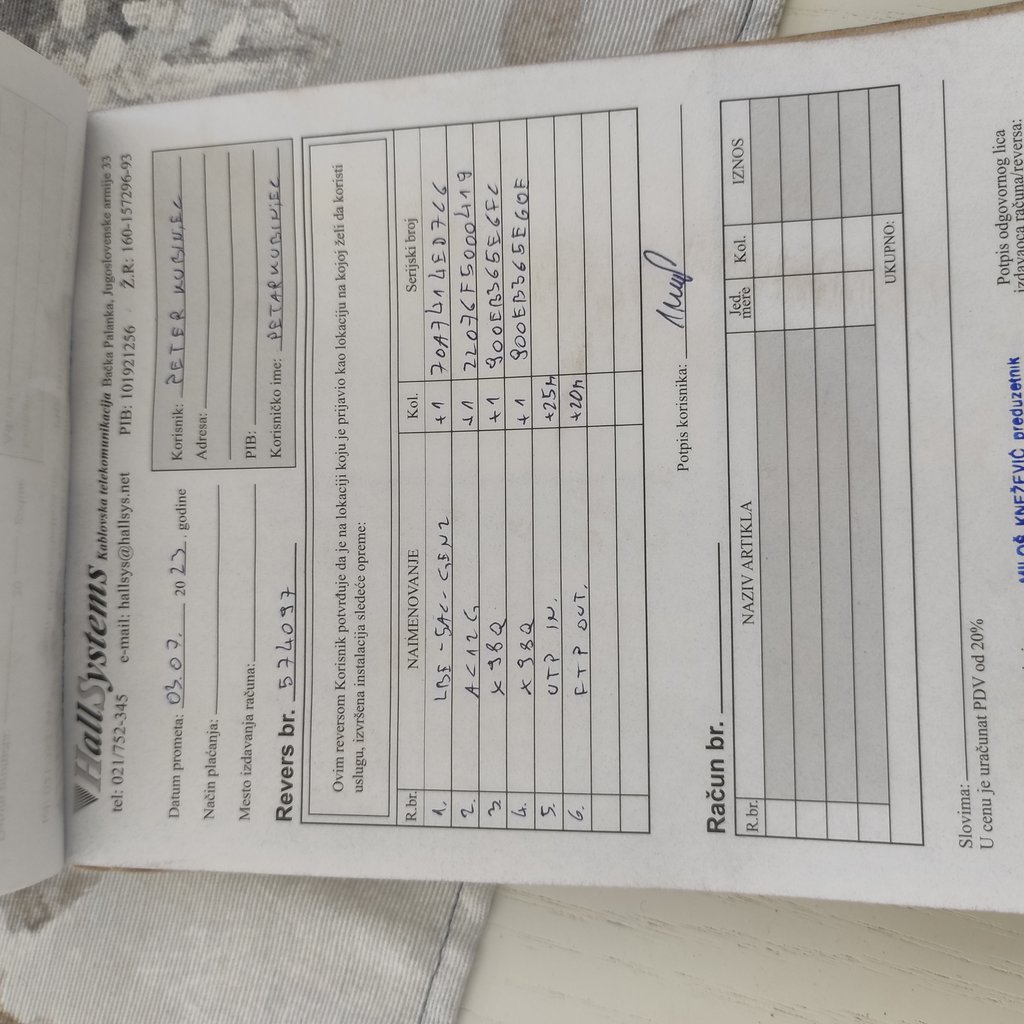 HallSystems Kablovska telekomunikacija Bačka Palanka, Jugoslovenske armije 33
tel: 021/752-345 e-mail: hallsys@hallsys.net PIB: 101921256 Ž.R: 160-157296-93
Datum prometa: 03.07. 2023. godine
Način plaćanja:
Mesto izdavanja računa:
Korisnik: PETER KUBINJEC
Adresa:
PIB:
Korisničko ime: PETARKUBINJEC
Revers br. 574097
Ovim reversom Korisnik potvrđuje da je na lokaciji koju je prijavio kao lokaciju na kojoj želi da koristi
uslugu, izvršena instalacija sledeće opreme:
R.br. NAIMENOVANJE Kol. Serijski broj
1. LBE-5AC-GEN2 +1 70A7414ED7C6
2. AC12G +1 22076F5000419
3. X98Q +1 900EB365E6FC
4. X98Q +1 900EB365E60E
5. UTP IN. +25m
6. FTP OUT. +20m
Potpis korisnika:
Račun br.
R.br. NAZIV ARTIKLA Jed. mere Kol. IZNOS
UKUPNO:
Slovima:
U cenu je uračunat PDV od 20%
Potpis odgovornog lica
izdavaoca računa/reversa:
MILOŠ KNEŽEVIĆ preduzetnik